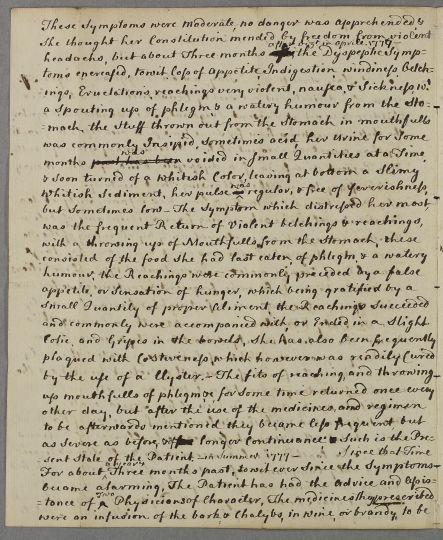 These Symptoms were Moderate, no danger was apprehended &
She thought her Constitution mended by freedom from violent
headachs, but about Three months after Augt. in Aprile 1779 the Dyspeptic Symp-
toms encreased, towit Loss of Appetite Indigestion windiness, Belch-
ings, Eructations, reachings very violent, nausea, & Sickness wt.
a Spouting up of phlegm & a watery humour from the Sto-
mach, the Stuff thrown out from the Stomach in mouthfulls
was commonly Insipid, sometimes acid, her Urine for Some
months was voided in Small Quantities at a Time
& soon turned of a whitish Color, leaving at bottom a Slimy
whitish Sediment, her pulse was regular, & free of feverishness,
but Sometimes low - The Symptom which distressed her most
was the frequent Return of Violent belchings & reachings,
with a throwing up of Mouthfulls from the Stomach, these
consisted of the food she had last eaten, of phlegm & a watery
humour, the Reachings were commonly preceded by a false
appetite, or Sensation of hunger, which being gratified by a
Small Quantity of proper aliment, the Reachings Succeeded
and commonly were accompanied with, or Ended in a Slight
Colic, and Gripes in the bowels, She has also been frequently
plagued with Costiveness, which however was readily Cured
by the use of a Clyster, - The fits of reaching, and throwing
up mouthfulls of phlegm &c for some time returned once every
other day, but after the use of the medicines, and regimen
to be afterwards mentioned they became less frequent but
as severe as before, & of longer Continuance Such is the Pre-
sent State of the Patient - in Summer 1779 - Since that Time
For about Three months past, to wit ever Since the Symptoms
became alarming, The Patient has had the advice and assis-
tance of Two Physicians of Character, The medicines they prescribed
were an infusion of the bark & Chalybs, in wine, or brandy, to be